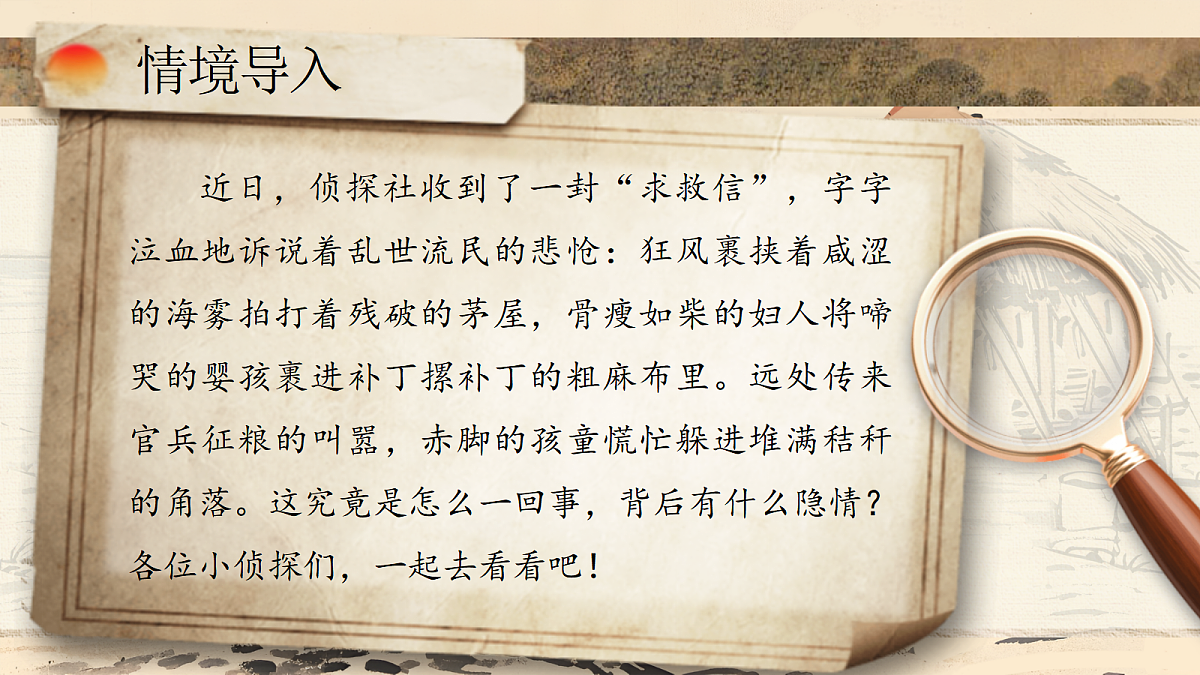 情境导入
近日，侦探社收到了一封“求救信”，字字
泣血地诉说着乱世流民的悲怆：狂风裹挟着咸涩
的海雾拍打着残破的茅屋，骨瘦如柴的妇人将啼
哭的婴孩裹进补丁摞补丁的粗麻布里。远处传来
官兵征粮的叫嚣，赤脚的孩童慌忙躲进堆满秸秆
的角落。这究竟是怎么一回事，背后有什么隐情？
各位小侦探们，一起去看看吧！